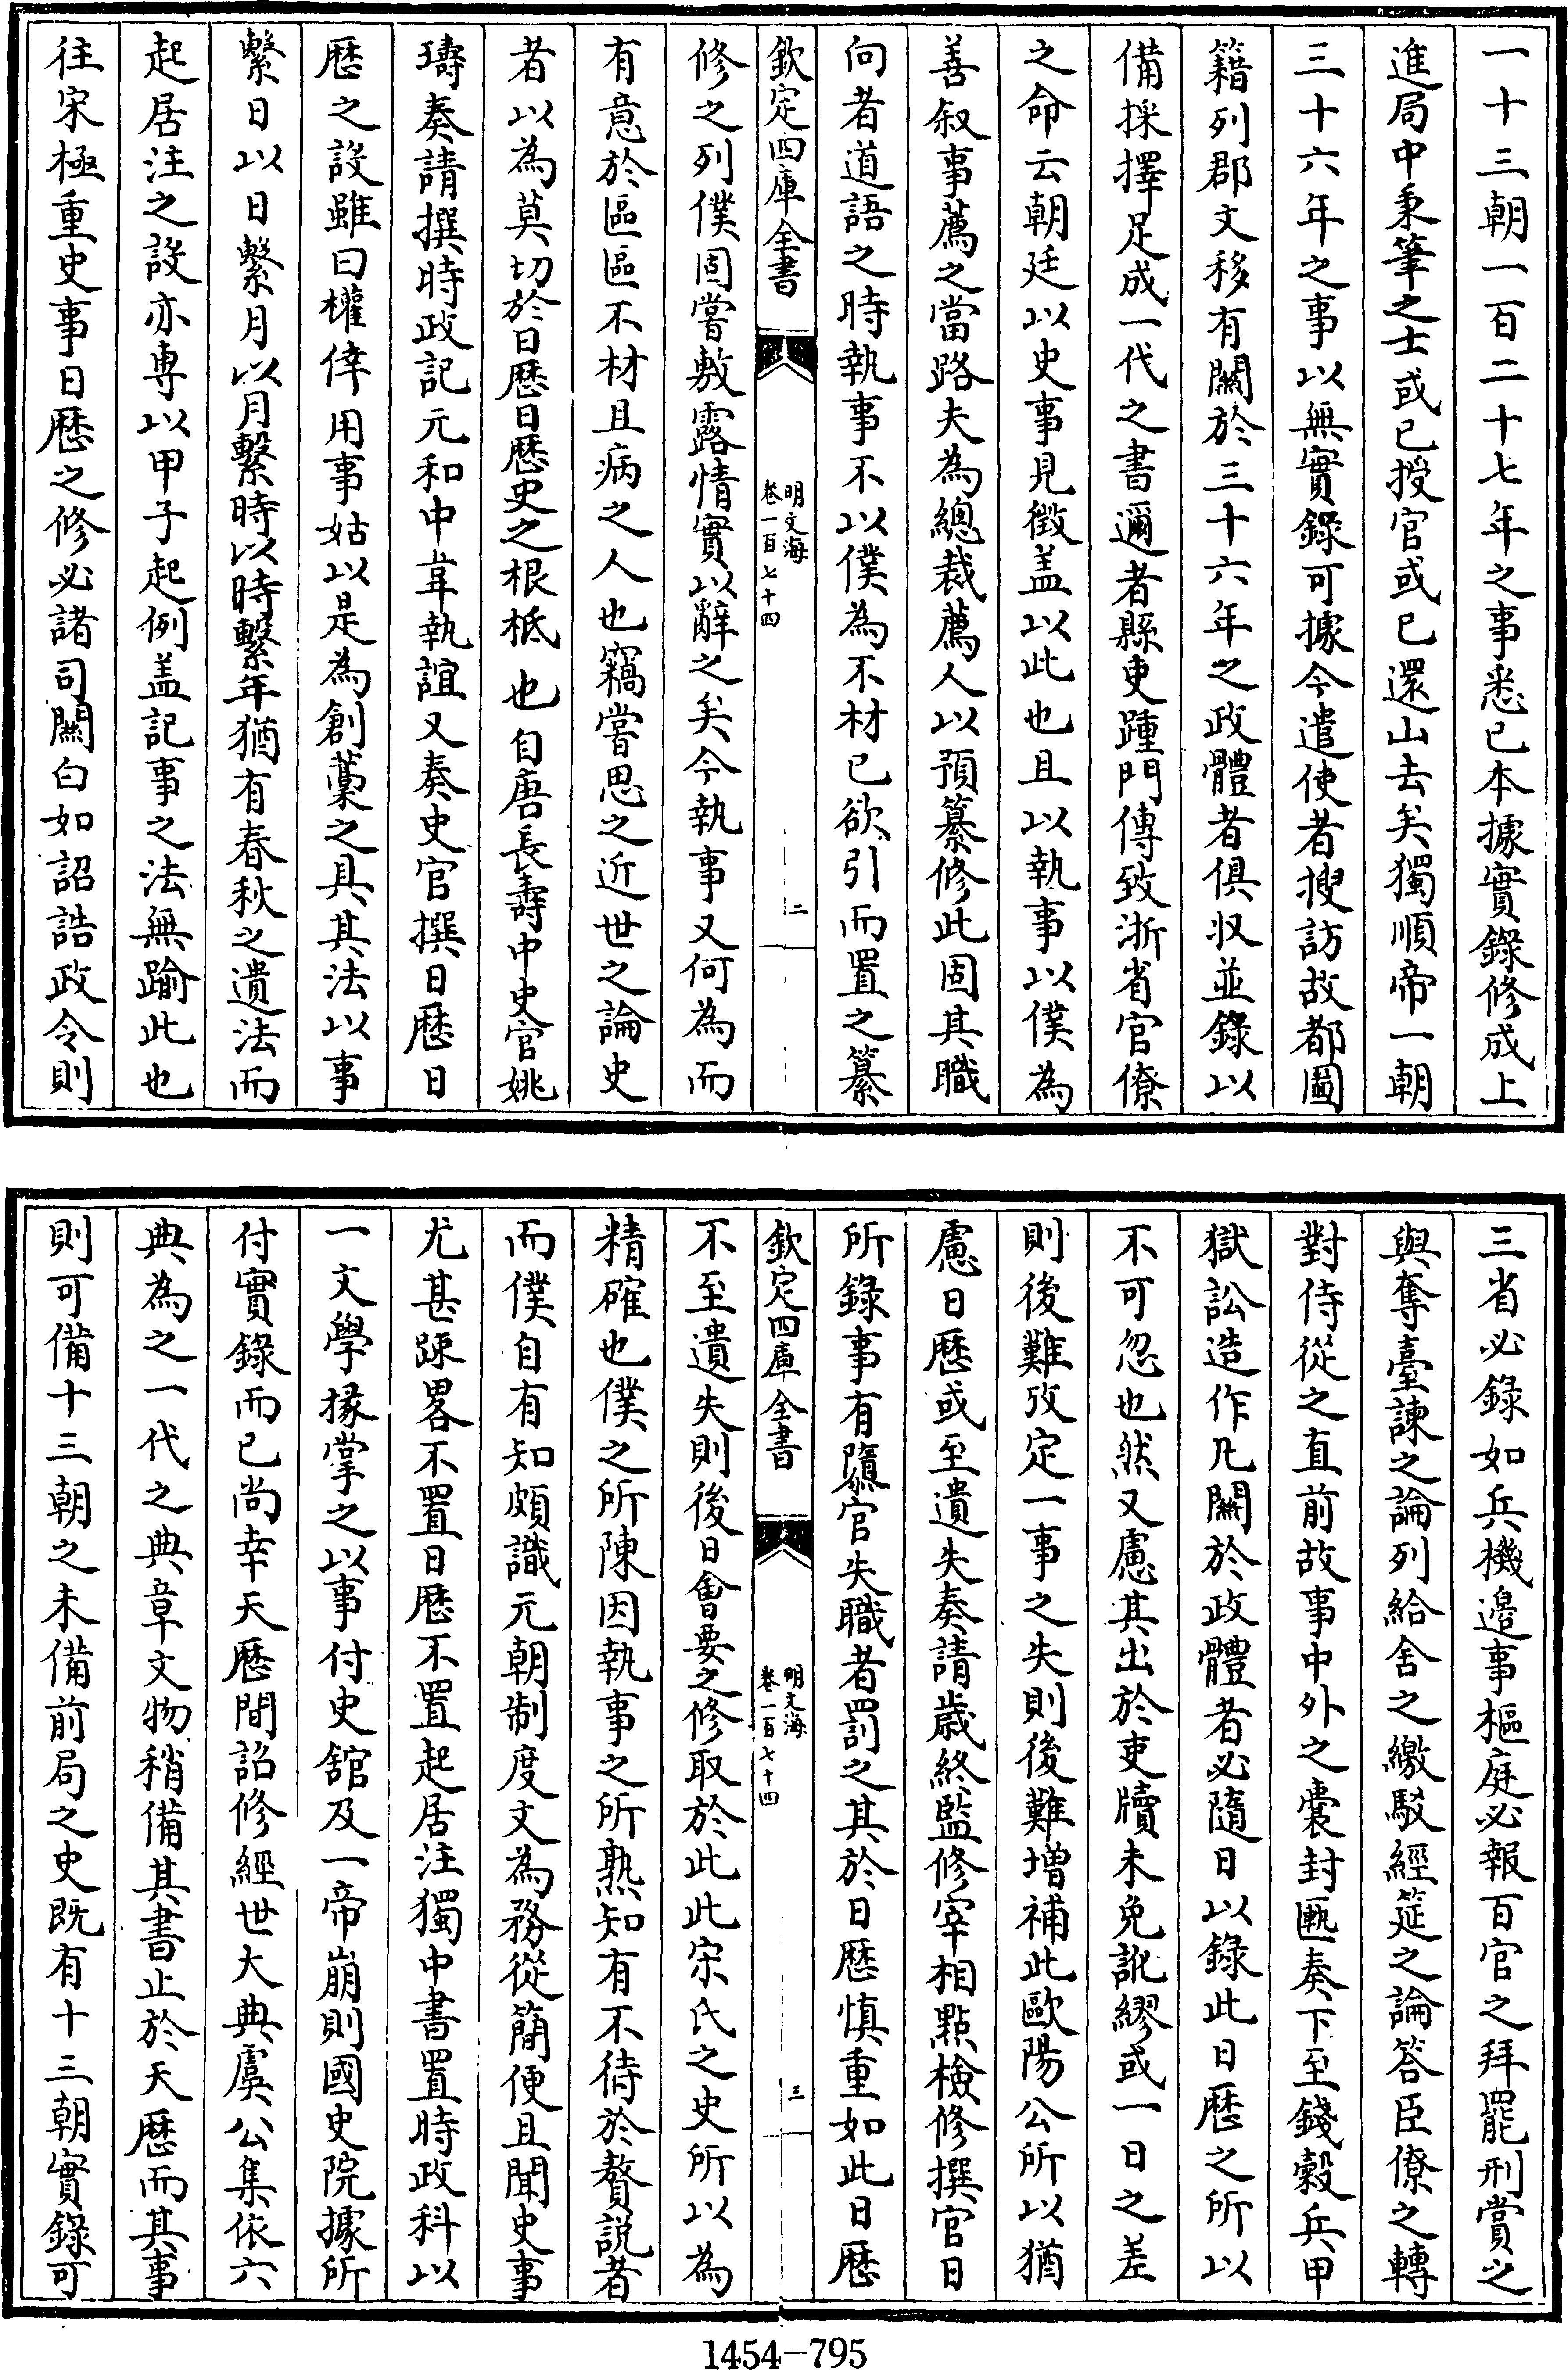 一十三朝一百二十七年之事悉已本據實錄修成上
進局中秉筆之士或已授官或已還山去矣獨順帝一朝
三十六年之事以無實錄可據今遣使者搜訪故都圖
籍列郡文移有闗於三十六年之政體者俱収並錄以
備採擇足成一代之書邇者縣吏踵門傳致浙省官僚
之命云朝廷以史事見徵盖以此也且以執事以僕為
善叙事薦之當路夫為總裁薦人以預纂修此固其職
向者道語之時執事不以僕為不材已欲引而置之纂
欽定四庫全書
明文海
卷一百七十四
二
修之列僕固嘗敷露情實以辭之矣今執事又何為而
有意於區區不材且病之人也竊嘗思之近世之論史
者以為莫切於日歴日歴史之根柢也自唐長壽中史官姚
璹奏請撰時政記元和中韋執誼又奏史官撰日歴日
歴之設雖曰權倖用事姑以是為創藁之具其法以事
繫日以日繫月以月繫時以時繫年猶有春秋之遺法而
起居注之設亦専以甲子起例盖記事之法無踰此也
往宋極重史事日歴之修必諸司闗白如詔誥政令則
三省必錄如兵機邉事樞庭必報百官之拜罷刑賞之
與奪臺諫之論列給舍之繳駁經筵之論答臣僚之轉
對侍從之直前故事中外之囊封匭奏下至錢榖兵甲
獄訟造作凡闗於政體者必隨日以錄此日歴之所以
不可忽也然又慮其出於吏牘未免訛繆或一日之差
則後難攷定一事之失則後難增補此歐陽公所以猶
慮日歴或至遺失奏請歲終監修宰相點檢修撰官日
所錄事有隳官失職者罰之其於日歴慎重如此日歴
欽定四庫全書
明文海
卷一百七十四
三
不至遺失則後日會要之修取於此此宋氏之史所以為
精確也僕之所陳因執事之所熟知有不待於贅説者
而僕自有知頗識元朝制度文為務從簡便且聞史事
尤甚踈畧不置日歴不置起居注獨中書置時政科以
一文學掾掌之以事付史舘及一帝崩則國史院據所
付實錄而已尚幸天歴間詔修經世大典虞公集依六
典為之一代之典章文物稍備其書止於天歴而其事
則可備十三朝之未備前局之史既有十三朝實錄可
1454-795